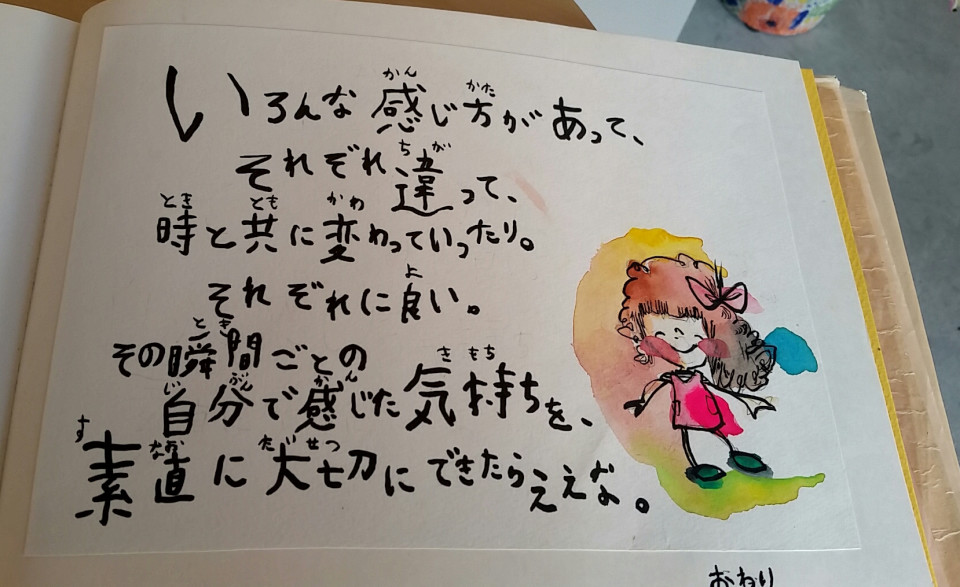 いろんな感じ方があって、
それぞれ違って、
時と共に変わっていったり。
それぞれに良い。
その瞬間ごとの
自分で感じた気持ちを、
素直に大切にできたらええな。
おわり